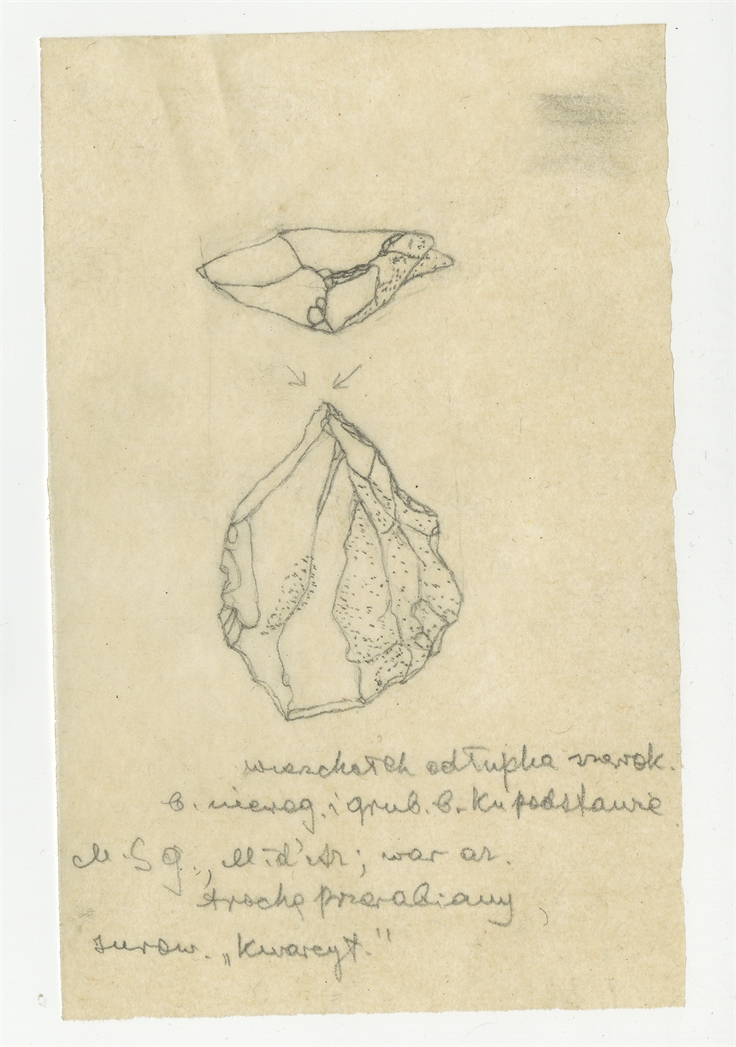 wierzchołek odłupka szerok.
b. niereg. i grub. b. ku podstawie
M. S g., M. d'Ar; war az.
trochę przerabiany,
surow. „Kwarcyt."